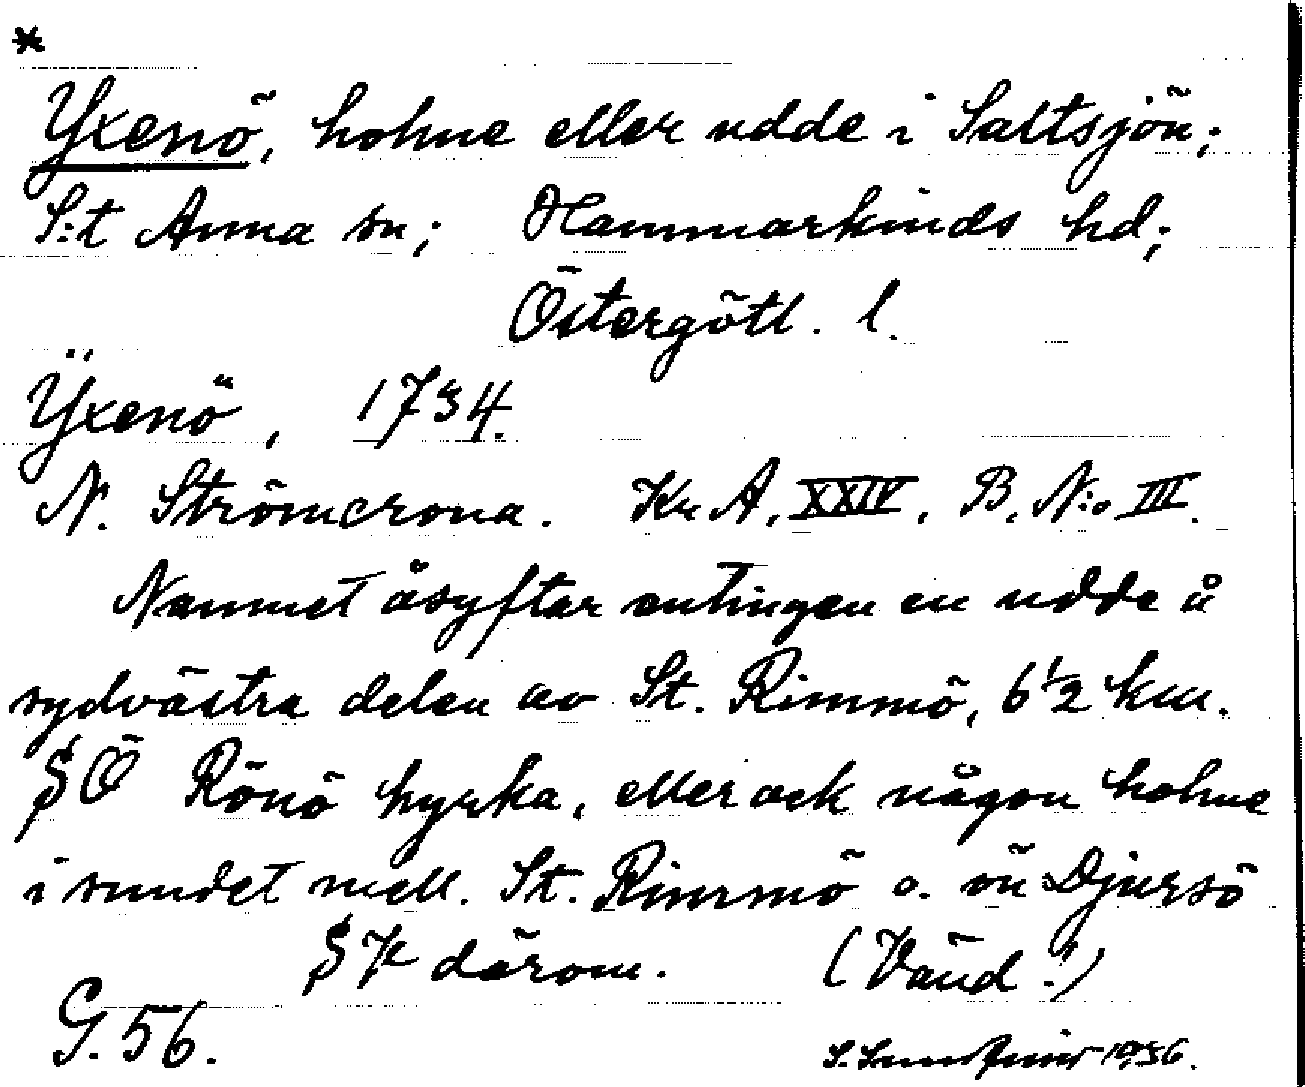 *
Yxenö, holme eller udde i Saltsjön;
S:t Anna sn; Hammarkinds hd;
Östergötl. l.
Ÿxenö, 1734.
N. Strömcrona. Kr A, XXIV. B. N:o III.
Namnet åsyftar antingen en udde å
sydvästra delen av St. Rimmö, 6 1/2 km.
SÖ Rönö kyrka, eller ock någon holme
i sundet mell. St. Rimmö o. ön Djursö
SV därom. (Vänd!)
G. 56.
1936.